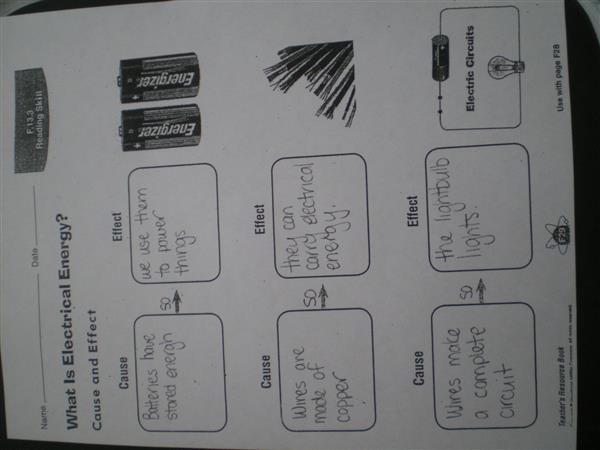 Name Date
F.13.3
Reading Skill
What Is Electrical Energy?
Cause and Effect
Cause
Effect
Batteries have
stored energh
so
we use them
to power
things
Energizer
Energizer
Cause
Effect
Wires are
made of
copper
so
they can
carry electrical
energy.
Cause
Effect
Wires make
a complete
circuit
so
the lightbulb
lights.
Electric Circuits
Teacher's Resource Book
F29
Use with page F28